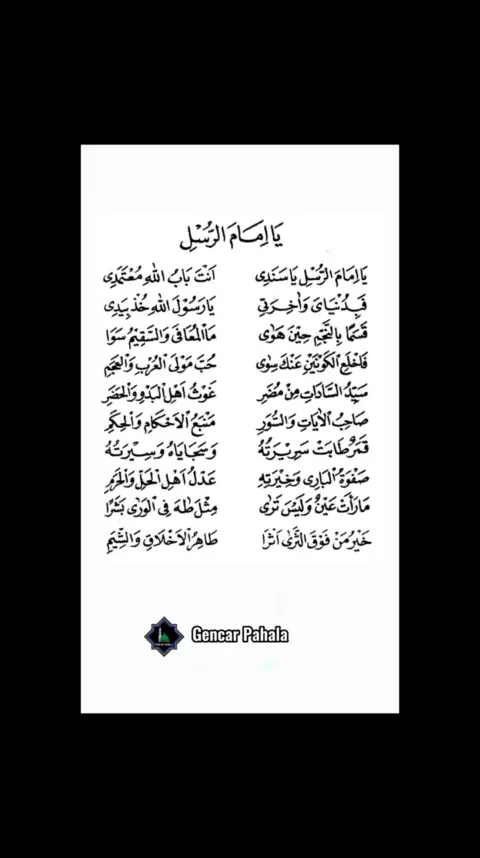 يَا اِمَامَ الرُّسْلِ
يَا اِمَامَ الرُّسْلِ يَا سَنَدِى اَنْتَ بَابُ اللهِ مُعْتَمَدِى
فَبِدُنْيَاىَ وَاٰخِرَتِى يَارَسُوْلَ اللهِ خُذْ بِيَدِى
قَسَمًا بِالنَّجْمِ حِيْنَ هَوٰى مَاالْمُعَافٰى وَالسَّقِيْمُ سَوَا
فَاخْلَعِ الْكَوْنَيْنِ عَنْكَ سِوٰى حُبَّ مَوْلَى الْعُرْبِ وَالْعَجَمِ
سَيِّدُ السَّادَاتِ مِنْ مُضَرِ غَوْثُ اَهْلِ الْبَدْوِ وَالْحَضَرِ
صَاحِبُ الْاٰيَاتِ وَالسُّوَرِ مَنْبَعُ الْاَحْكَامِ وَالْحِكَمِ
قَمَرٌ طَابَتْ سَرِيْرَتُهُ وَسَجَايَاهُ وَسِيْرَتُهُ
صَفْوَةُ الْبَارِى وَخِيْرَتُهُ عَدْلُ اَهْلِ الْحِلِّ وَالْحَرَمِ
مَارَأَتْ عَيْنٌ وَلَيْسَ تَرٰى مِثْلَ طٰهَ فِى الْوَرٰى بَشَرًا
خَيْرُ مَنْ فَوْقَ الثَّرٰى اَثَرًا طَاهِرُ الْاَخْلَاقِ وَالشِّيَمِ
Gencar Pahala